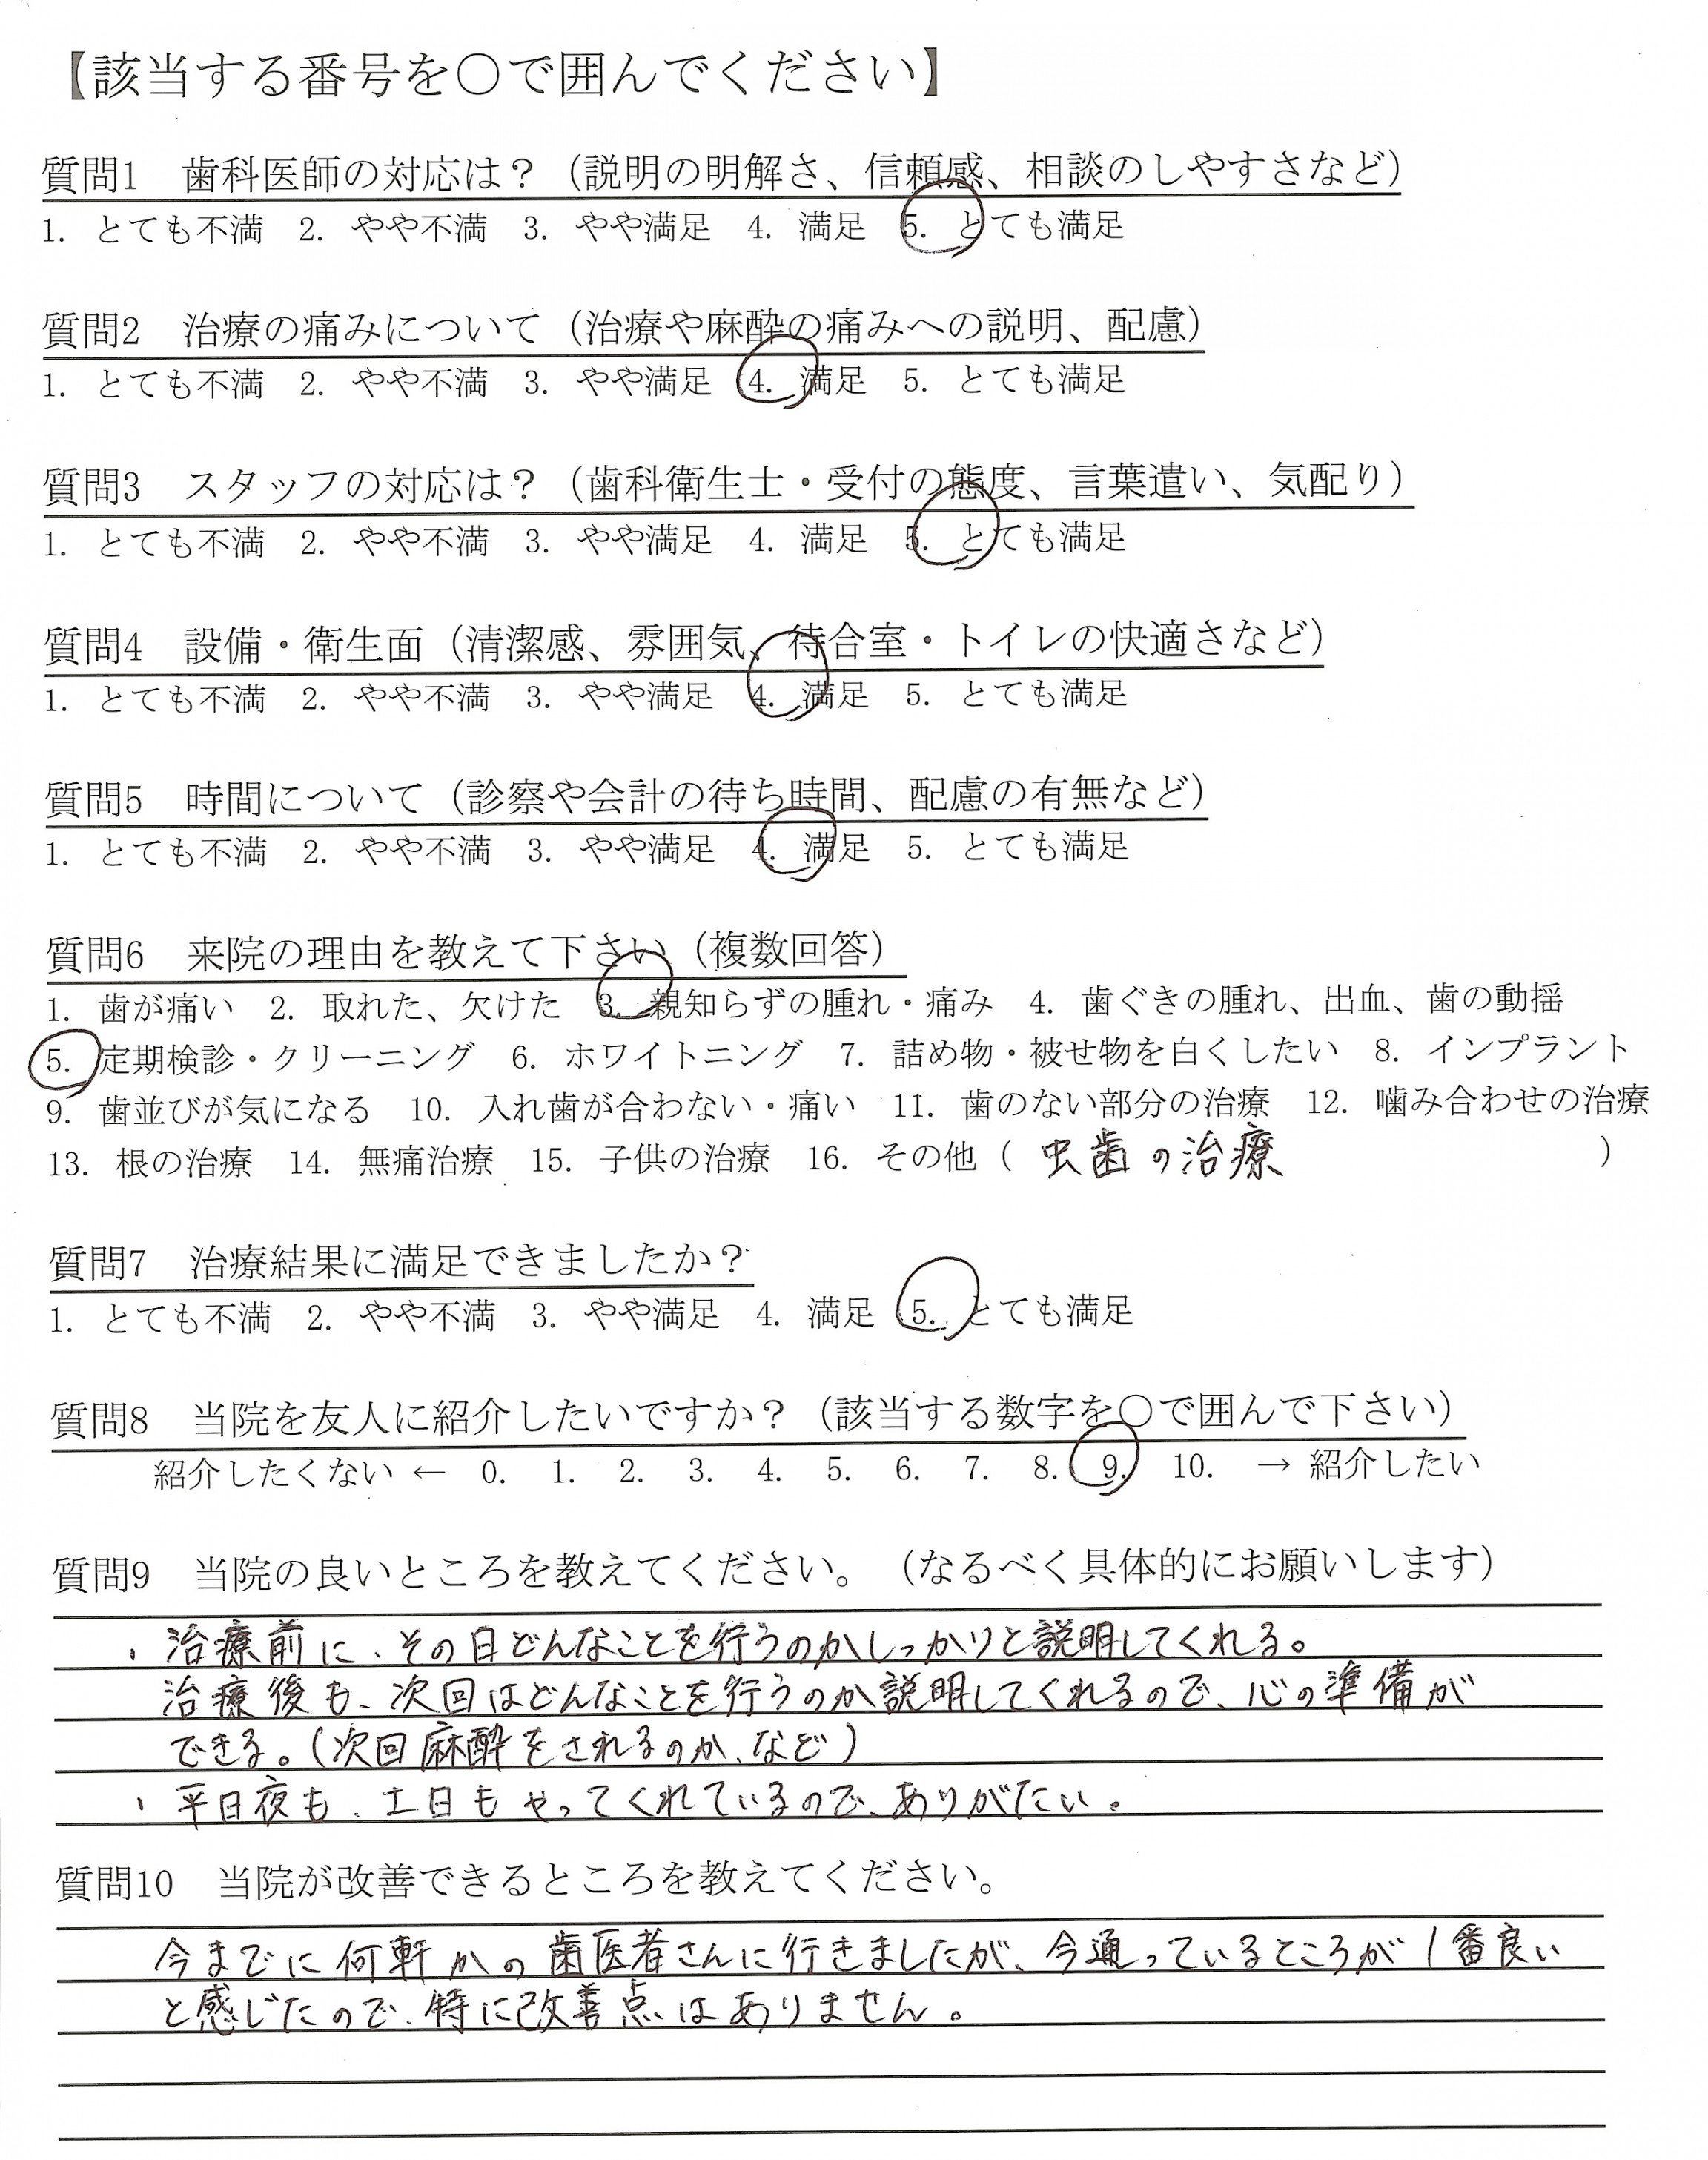 【該当する番号を○で囲んでください】
質問1　歯科医師の対応は？（説明の明解さ、信頼感、相談のしやすさなど）
1. とても不満　2. やや不満　3. やや満足　4. 満足　5. とても満足
質問2　治療の痛みについて（治療や麻酔の痛みへの説明、配慮）
1. とても不満　2. やや不満　3. やや満足　4. 満足　5. とても満足
質問3　スタッフの対応は？（歯科衛生士・受付の態度、言葉遣い、気配り）
1. とても不満　2. やや不満　3. やや満足　4. 満足　5. とても満足
質問4　設備・衛生面（清潔感、雰囲気、待合室・トイレの快適さなど）
1. とても不満　2. やや不満　3. やや満足　4. 満足　5. とても満足
質問5　時間について（診察や会計の待ち時間、配慮の有無など）
1. とても不満　2. やや不満　3. やや満足　4. 満足　5. とても満足
質問6　来院の理由を教えて下さい（複数回答）
1. 歯が痛い　2. 取れた、欠けた　3. 親知らずの腫れ・痛み　4. 歯ぐきの腫れ、出血、歯の動揺
5. 定期検診・クリーニング　6. ホワイトニング　7. 詰め物・被せ物を白くしたい　8. インプラント
9. 歯並びが気になる　10. 入れ歯が合わない・痛い　11. 歯のない部分の治療　12. 噛み合わせの治療
13. 根の治療　14. 無痛治療　15. 子供の治療　16. その他（ 虫歯の治療 ）
質問7　治療結果に満足できましたか？
1. とても不満　2. やや不満　3. やや満足　4. 満足　5. とても満足
質問8　当院を友人に紹介したいですか？（該当する数字を○で囲んで下さい）
紹介したくない ← 0. 1. 2. 3. 4. 5. 6. 7. 8. 9. 10. → 紹介したい
質問9　当院の良いところを教えてください。（なるべく具体的にお願いします）
・治療前に、その日どんなことを行うのかしっかりと説明してくれる。
治療後も、次回はどんなことを行うのか説明してくれるので、心の準備が
できる。（次回麻酔をされるのか、など）
・平日夜も、土日もやってくれているので、ありがたい。
質問10　当院が改善できるところを教えてください。
今までに何軒かの歯医者さんに行きましたが、今通っているところが1番良い
と感じたので、特に改善点はありません。